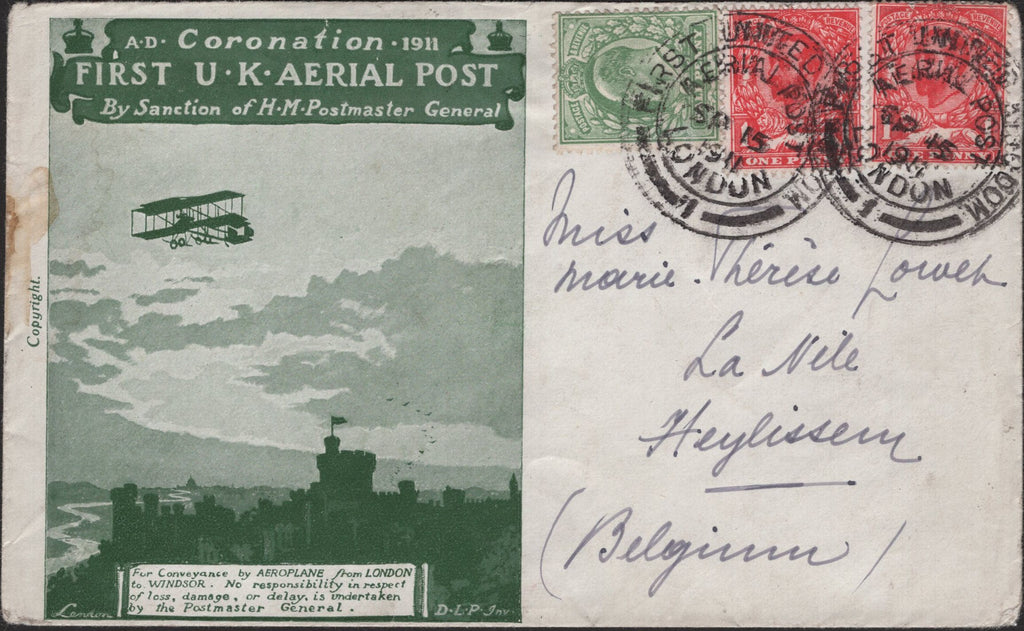 A·D· Coronation · 1911
FIRST U·K·AERIAL POST
By Sanction of H·M·Postmaster General
Copyright.
For Conveyance by AEROPLANE from LONDON
to WINDSOR. No responsibility in respect
of loss, damage, or delay, is undertaken
by the Postmaster General.
London
D·L·P·Inv
POSTAGE
REVENUE
ONE P
FIRST UNITED KINGDOM
AERIAL POST
SP 15
1911
LONDON
1
AERIAL POST
SP 15
1911
LONDON
1
Miss
Marie Thérèse
La Nile
Heylissem
(Belgium)